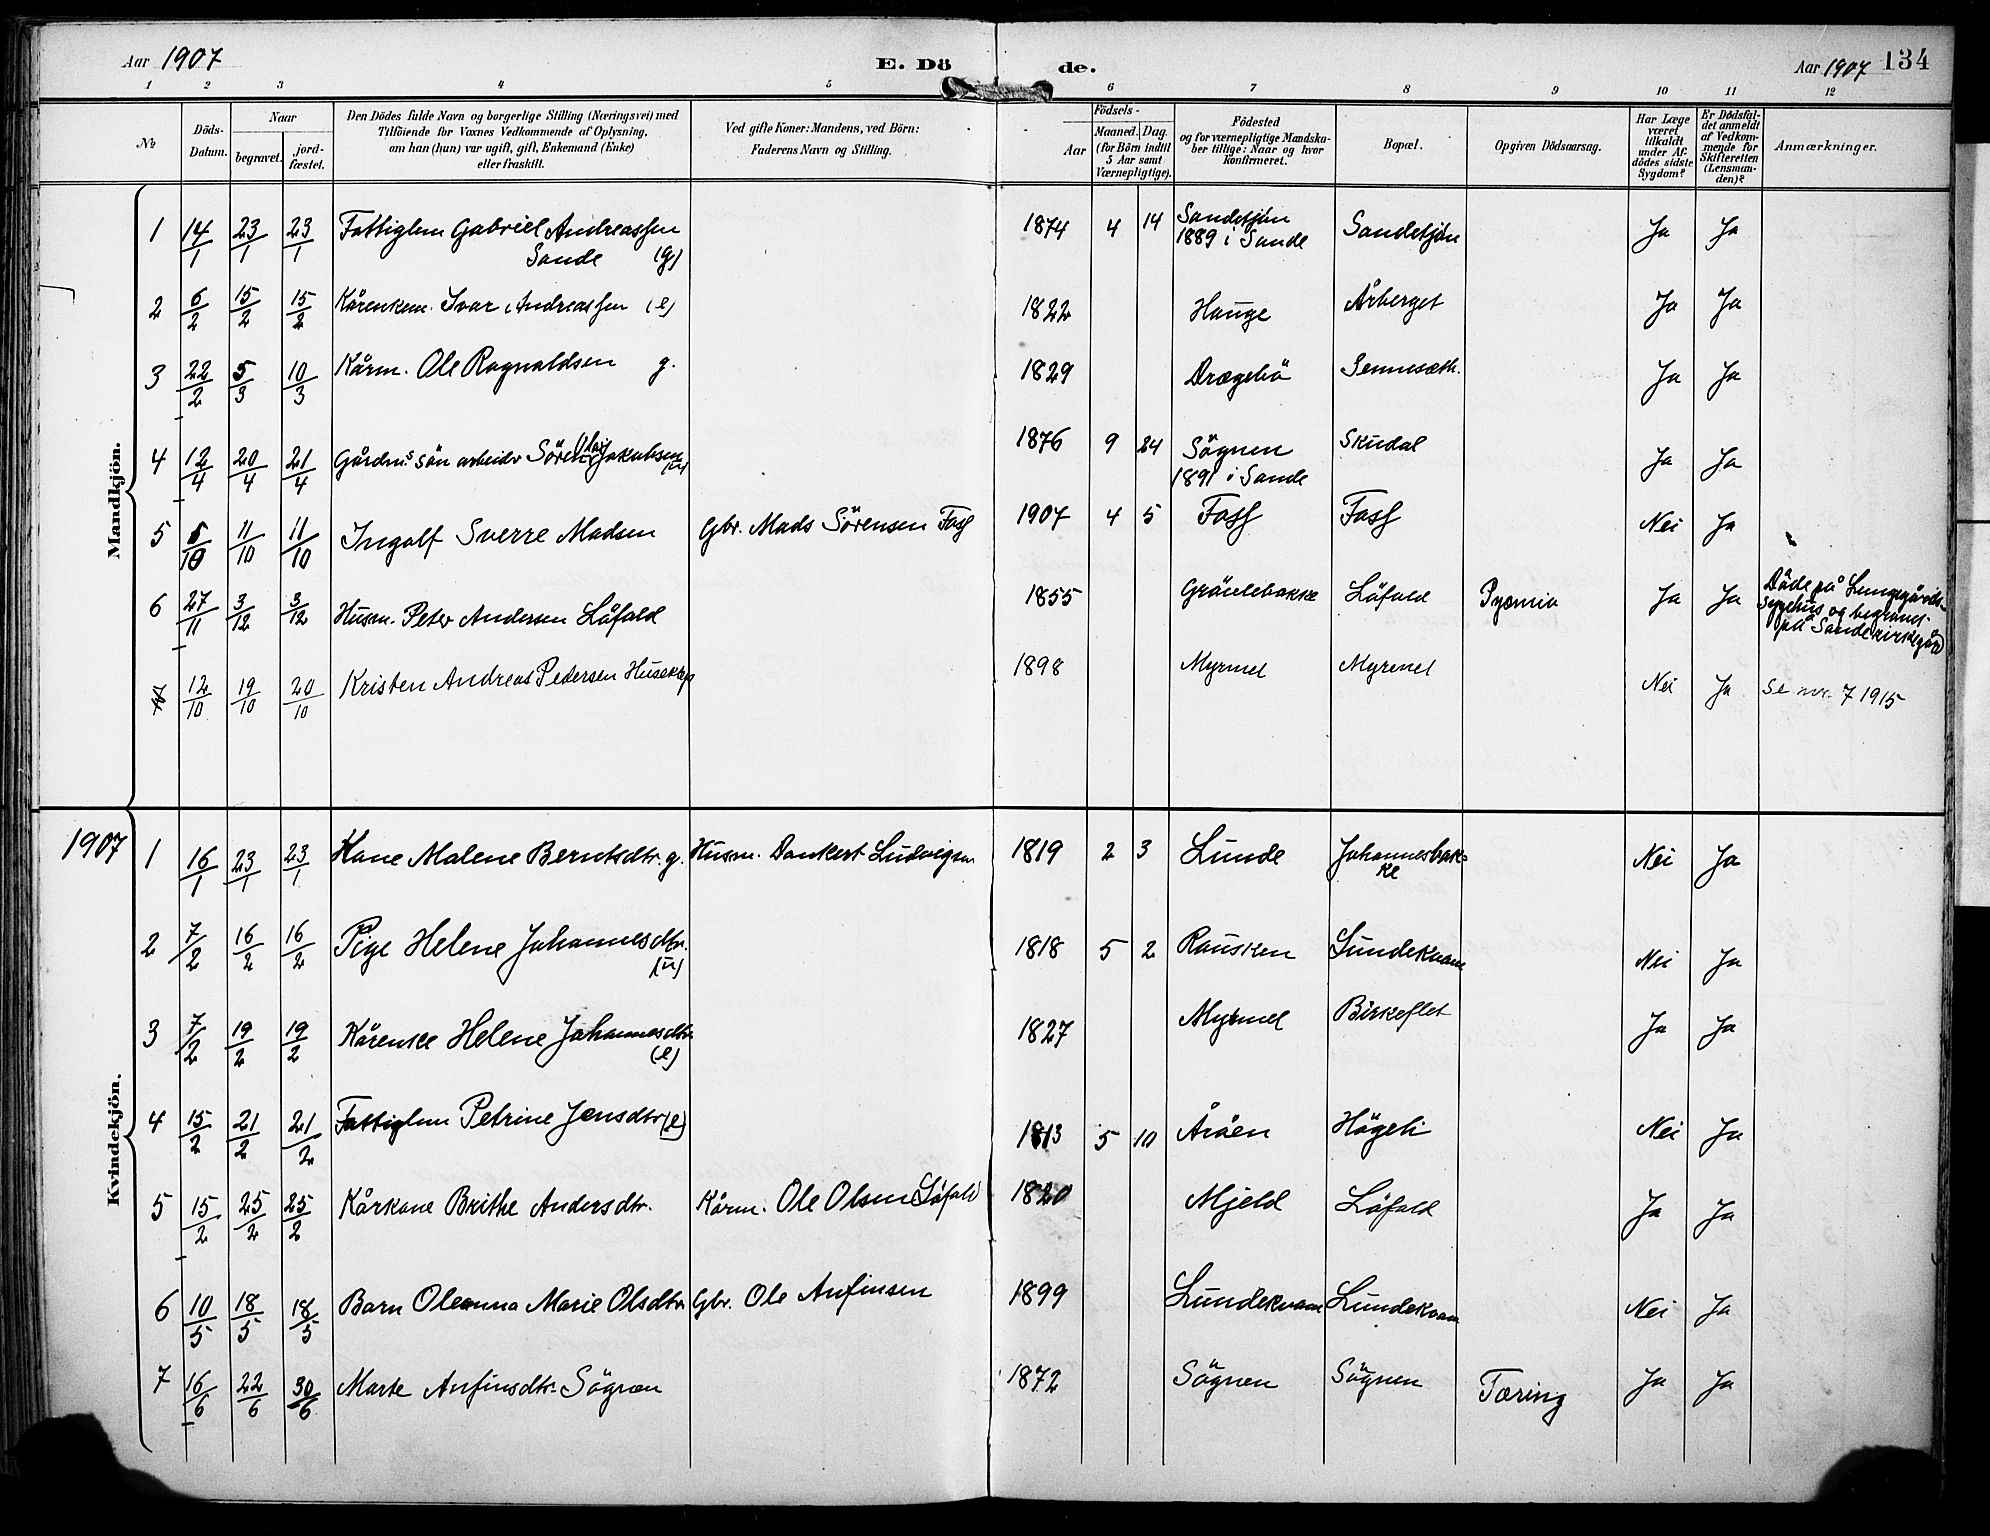 Aar 1907 E. Dö de. Aar 1907 134
1 2 3 4 5 6 7 8 9 10 11 12
No
Döds-Datum.
Naar
begravet.
jord-fæstet.
Den Dödes fulde Navn og borgerlige Stilling (Næringsvei) med
Tilföiende for Voxnes Vedkommende af Oplysning,
om han (hun) var ugift, gift, Enkemand (Enke)
eller fraskilt.
Ved gifte Koner: Mandens, ved Börn:
Faderens Navn og Stilling.
Födsels-
Aar
Maaned. Dag.
(for Börn indtil
5 Aar samt
Værnepligtige).
Födested
og for værnepligtige Mandska-
ber tillige: Naar og hvor
konfirmeret.
Bopæl.
Opgiven Dödsaarsag.
Har Læge
været
tilkaldt
under Af-
dödes sidste
Sygdom?
Er Dödsfal-
det anmeldt
af Vedkom-
mende for
Skifteretten
(Lensman-
den)?
Anmærkninger.
Mandkjön.
1 14/1 23/1 23/1 Fattiglem Gabriel Andreassen 1874 4 14 Sandetjön Sandetjön Ja Ja
Sande (g) 1889 i Sande
2 6/2 15/2 15/2 Kårenkem. Ivar Andreassen (e) 1822 Hauge Årberget Ja Ja
3 22/2 5/3 10/3 Kårm. Ole Ragnaldsen g. 1829 Drægebö Sennesæth. Ja Ja
4 12/4 20/4 21/4 Gårdm.s sön arbeider Sören Jakobsen (u) 1876 9 24 Sögnen Skudal Ja Ja
1891 i Sande
5 5/10 11/10 11/10 Ingolf Sverre Madsen Gbr. Mads Sörensen Foss 1907 4 5 Foss Foss Nei Ja
6 27/11 3/12 3/12 Husm. Peter Andersen Låfald 1855 Gräulebakke Låfald Pyæmia Ja Ja Döde på Lungegårds-
sygehus og begraves
på Sande kirkegård
7 12/10 19/10 20/10 Kristen Andreas Pedersen 1898 Myrmel Myrmel Nei Ja Se nr. 7 1915
Kvindekjön.
1907 1 16/1 23/1 23/1 Kone Malene Berntsdtr. g. Husm. Dankert Ludvigsen 1819 2 3 Lunde Johannesbak-
ke Nei Ja
2 7/2 16/2 16/2 Pige Helene Johannesdtr. 1818 5 2 Rausken Lundekvam Nei Ja
(u)
3 7/2 19/2 19/2 Kårenke Helene Johannesdtr. 1827 Myrmel Birkeflet Ja Ja
(e)
4 15/2 21/2 21/2 Fattiglem Petrine Jensdtr (e) 1813 5 10 Åråen Högeli Nei Ja
5 15/2 25/2 25/2 Kårkone Brithe Andersdtr. Kårm. Ole Olsen Låfald 1820 Mjeld Låfald Ja Ja
6 10/5 18/5 18/5 Barn Oleanna Marie Olsdtr Gbr. Ole Anfinsen 1899 Lundekvam Lundekvam Nei Ja
7 16/6 22/6 30/6 Marte Anfinsdtr. Sögnen 1872 Sögnen Sögnen Tæring Ja Ja